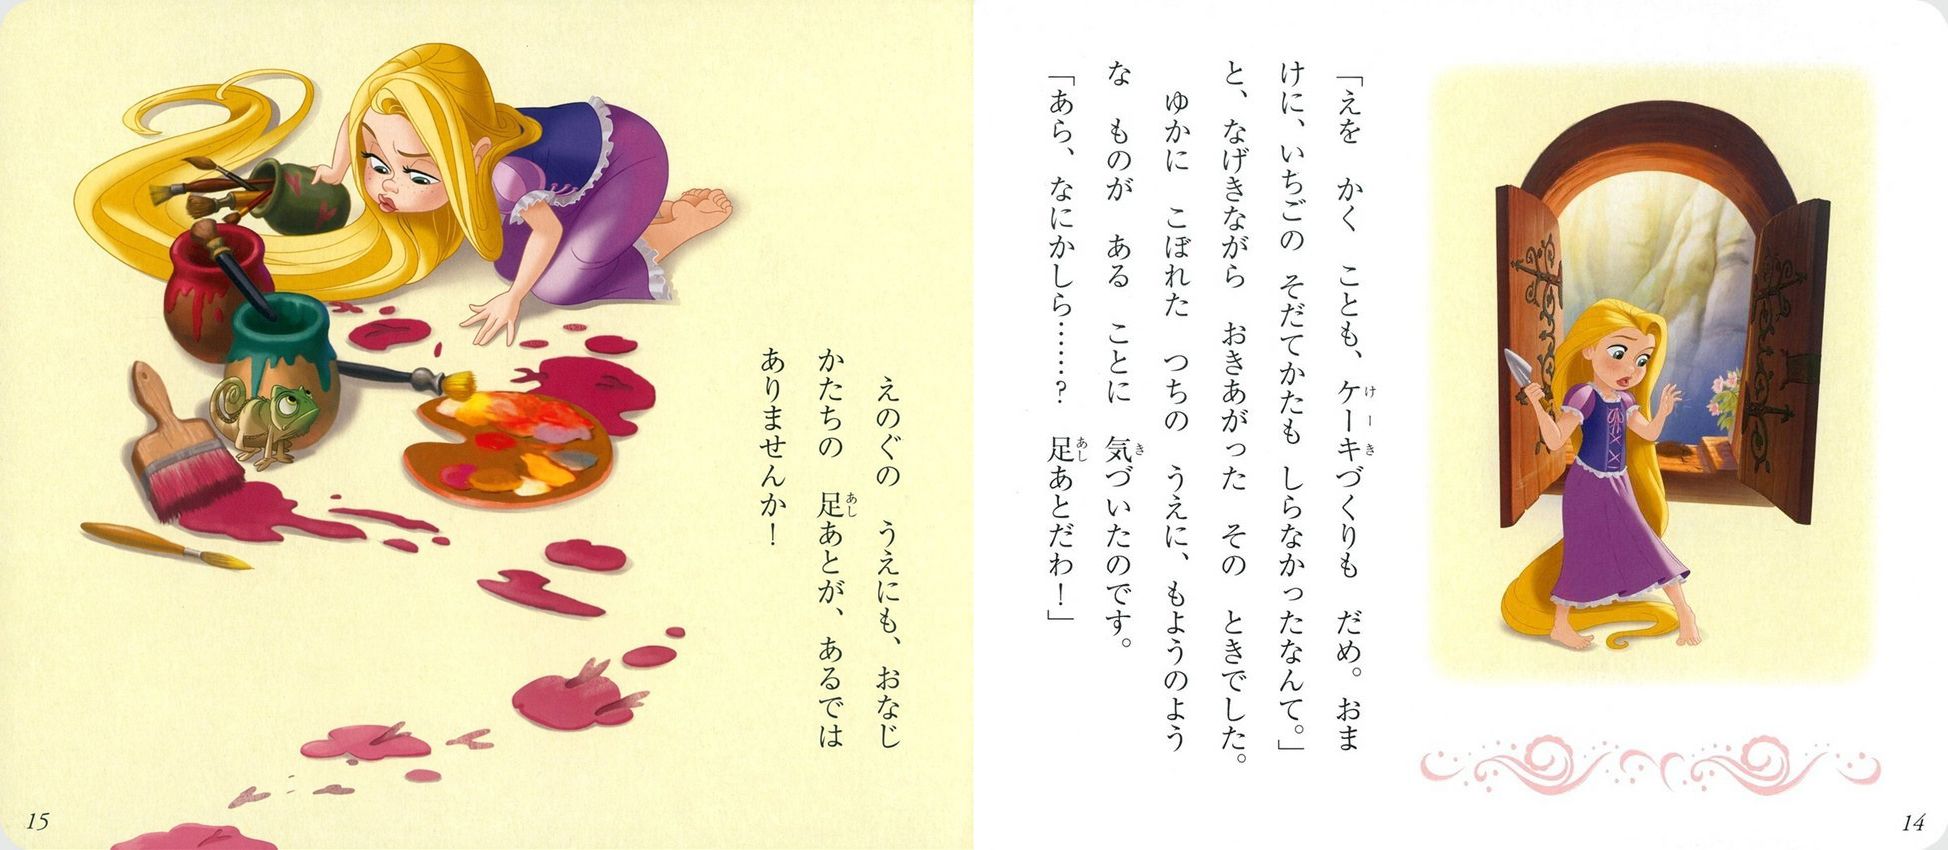 「えを かく ことも、ケーキづくりも だめ。おま
けに、いちごの そだてかたも しらなかったなんて。」
と、なげきながら おきあがった その ときでした。
ゆかに こぼれた つちの うえに、もようのよう
な ものが ある ことに 気づいたのです。
「あら、なにかしら……? 足あとだわ!」
14
えのぐの うえにも、おなじ
かたちの 足あとが、あるでは
ありませんか!
15